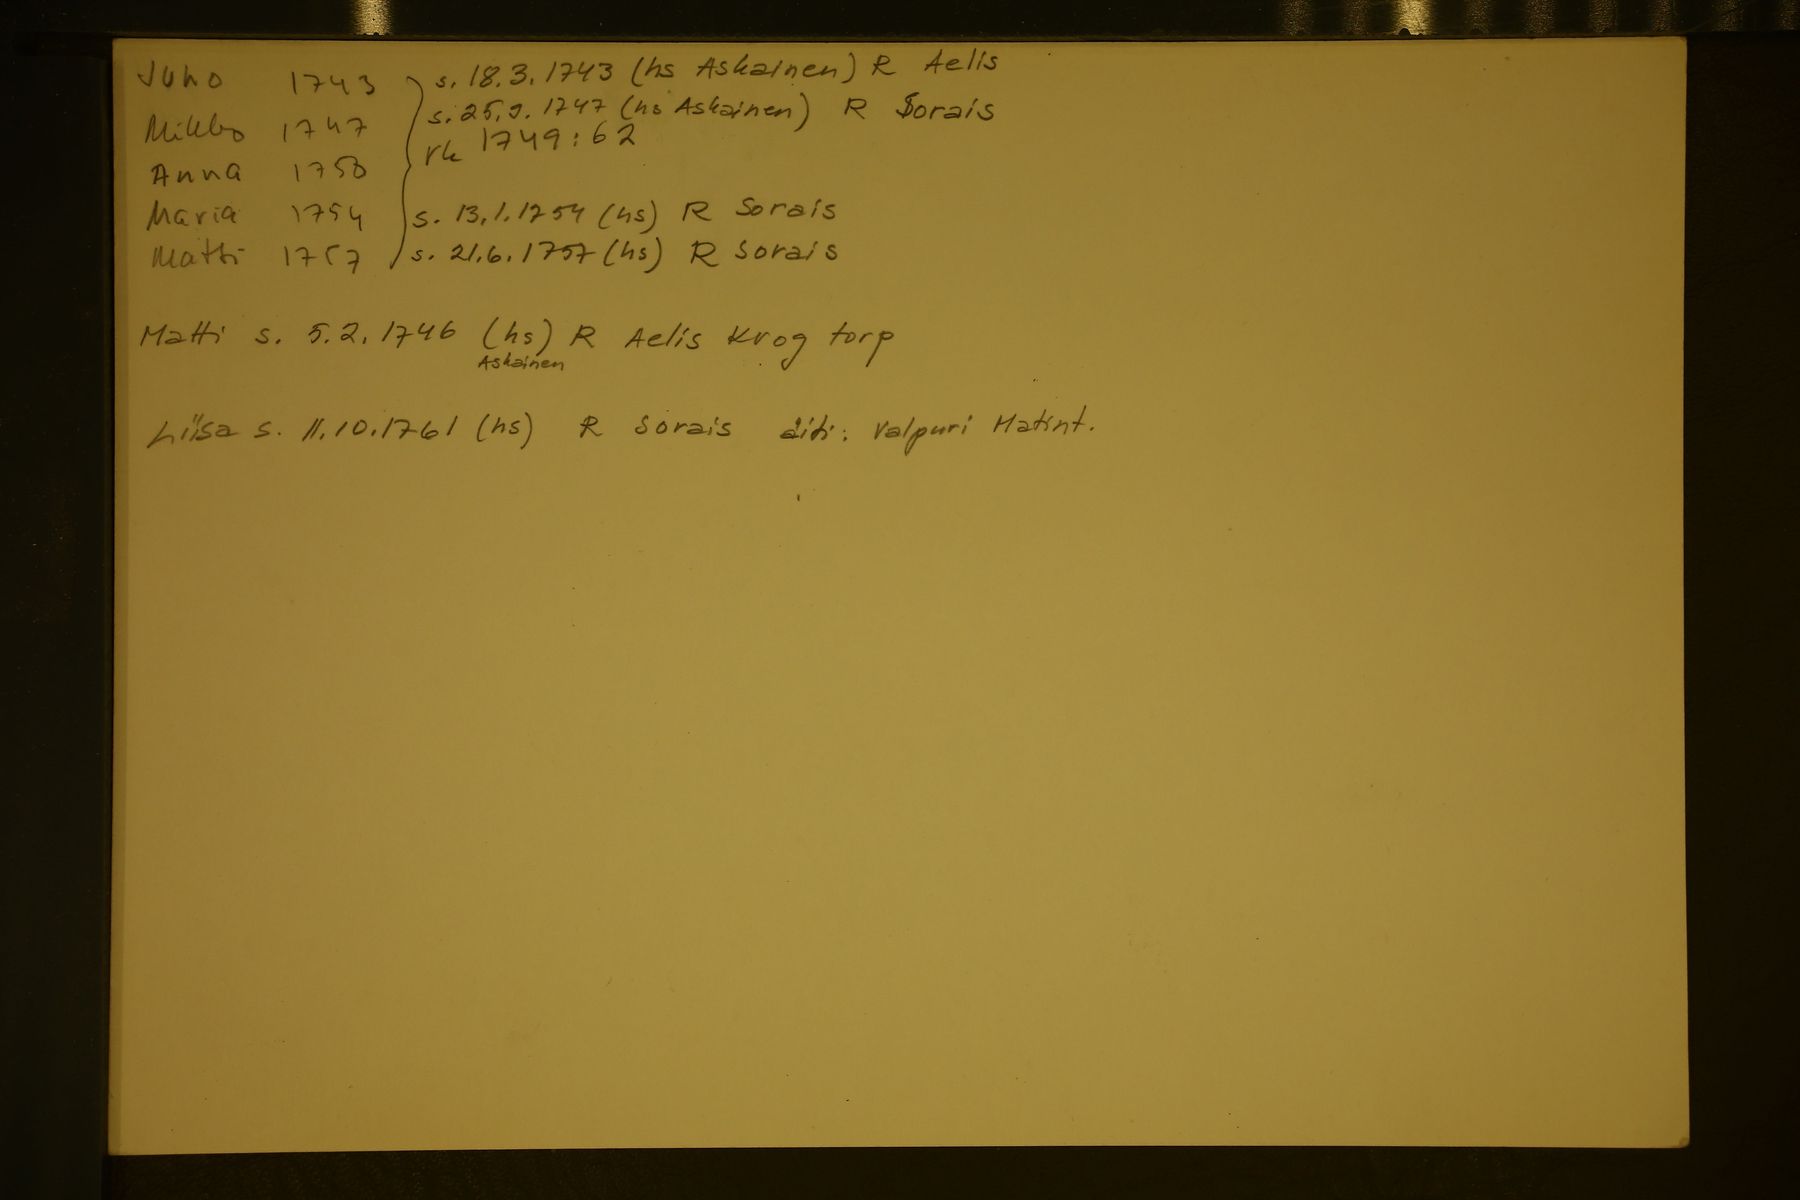 Juho 1743 s. 18.3.1743 (hs Askainen) R Aelis
Mikko 1747 s. 25.9.1747 (hs Askainen) R Sorais
rk 1749:62
Anna 1750
Maria 1754 s. 13.1.1754 (hs) R Sorais
Matti 1757 s. 21.6.1757 (hs) R Sorais
Matti s. 5.2.1746 (hs) R Aelis Krog torp
Askainen
Liisa s. 11.10.1761 (hs) R Sorais äiti: Valpuri Matint.